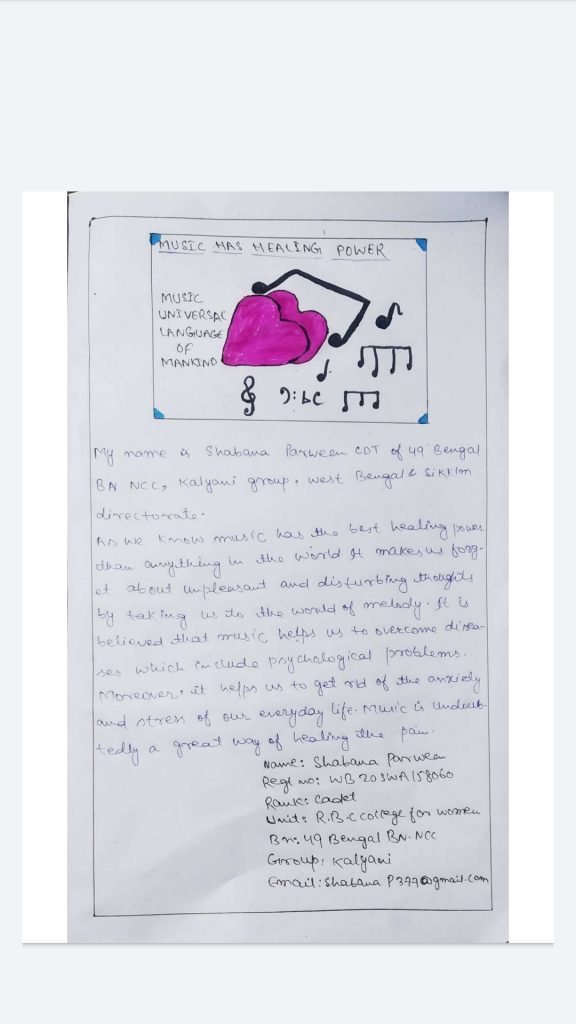 MUSIC HAS HEALING POWER
MUSIC
UNIVERSAL
LANGUAGE
OF
MANKIND
My name is Shabana Parween CDT of 49 Bengal
BN NCC, Kalyani group, West Bengal & Sikkim
directorate.
As we know music has the best healing power
than anything in the world It makes us forg-
et about unpleasant and disturbing thoughts
by taking us to the world of melody. It is
believed that music helps us to overcome disea-
ses which include psychological problems.
Moreover, it helps us to get rid of the anxiety
and stress of our everyday life. Music is undoub-
tedly a great way of healing the pain.
Name: Shabana Parween
Regt no: WB20SWA158060
Rank: Cadet
Unit: R.B.C College for women
Bn: 49 Bengal BN. NCC
Group: Kalyani
Email: Shabana P377@gmail.com